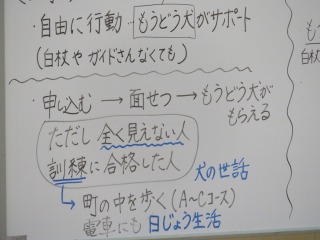 ・自由に行動 もうどう犬がサポート
(白杖やガイドさんなくても)
・申し込む → 面せつ → もうどう犬が
もらえる
ただし 全く見えない人
訓練に合格した人
犬の世話
→ 町の中を歩く(A〜Cコース)
電車にも 日じょう生活
白杖